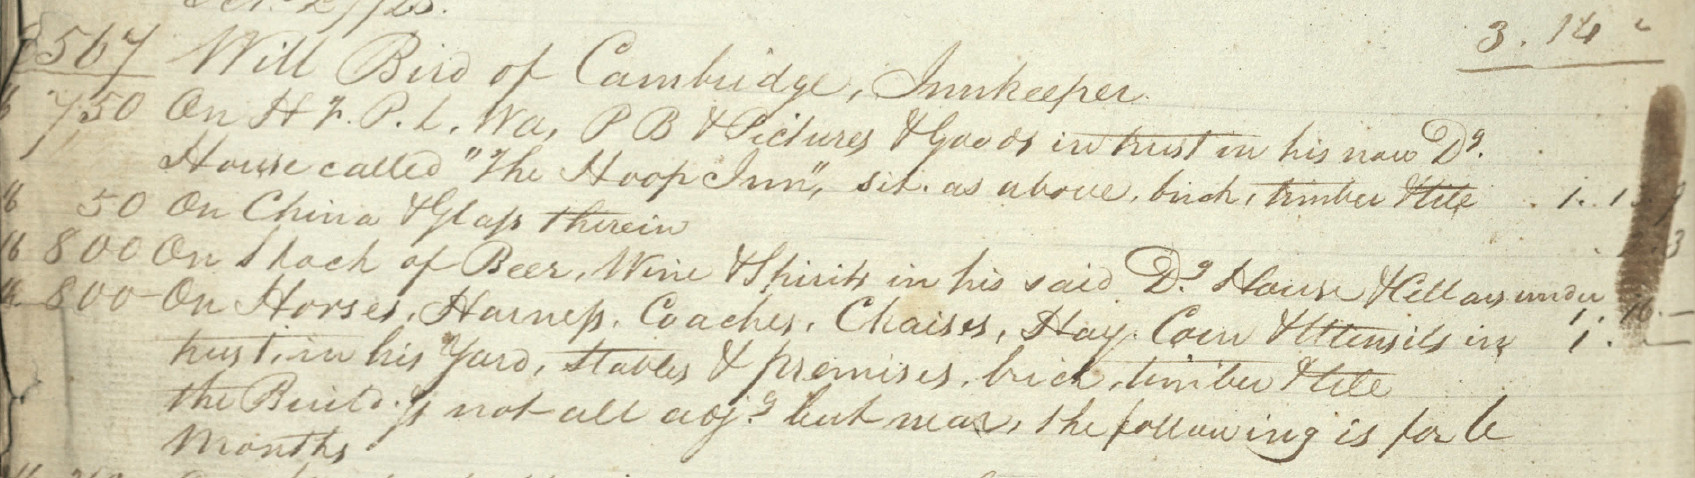 3. 14
567 Will Bird of Cambridge, Innkeeper.
750 On H F. P. L. Wa, P B & Pictures & Goods in trust in his now Dg.
House called "The Hoop Inn", sit. as above, brick, timber & tile 1.
50 On China & Glass therein 3
800 On Stock of Beer, Wine & Spirits in his said Dg. House & Cellars under
800 On Horses, Harness, Coaches, Chaises, Hay, Corn & Utensils in 1.
trust, in his Yard, Stables & premises, brick, timber & tile
the Build.gs not all adj.g but near, the following is for 6
Months